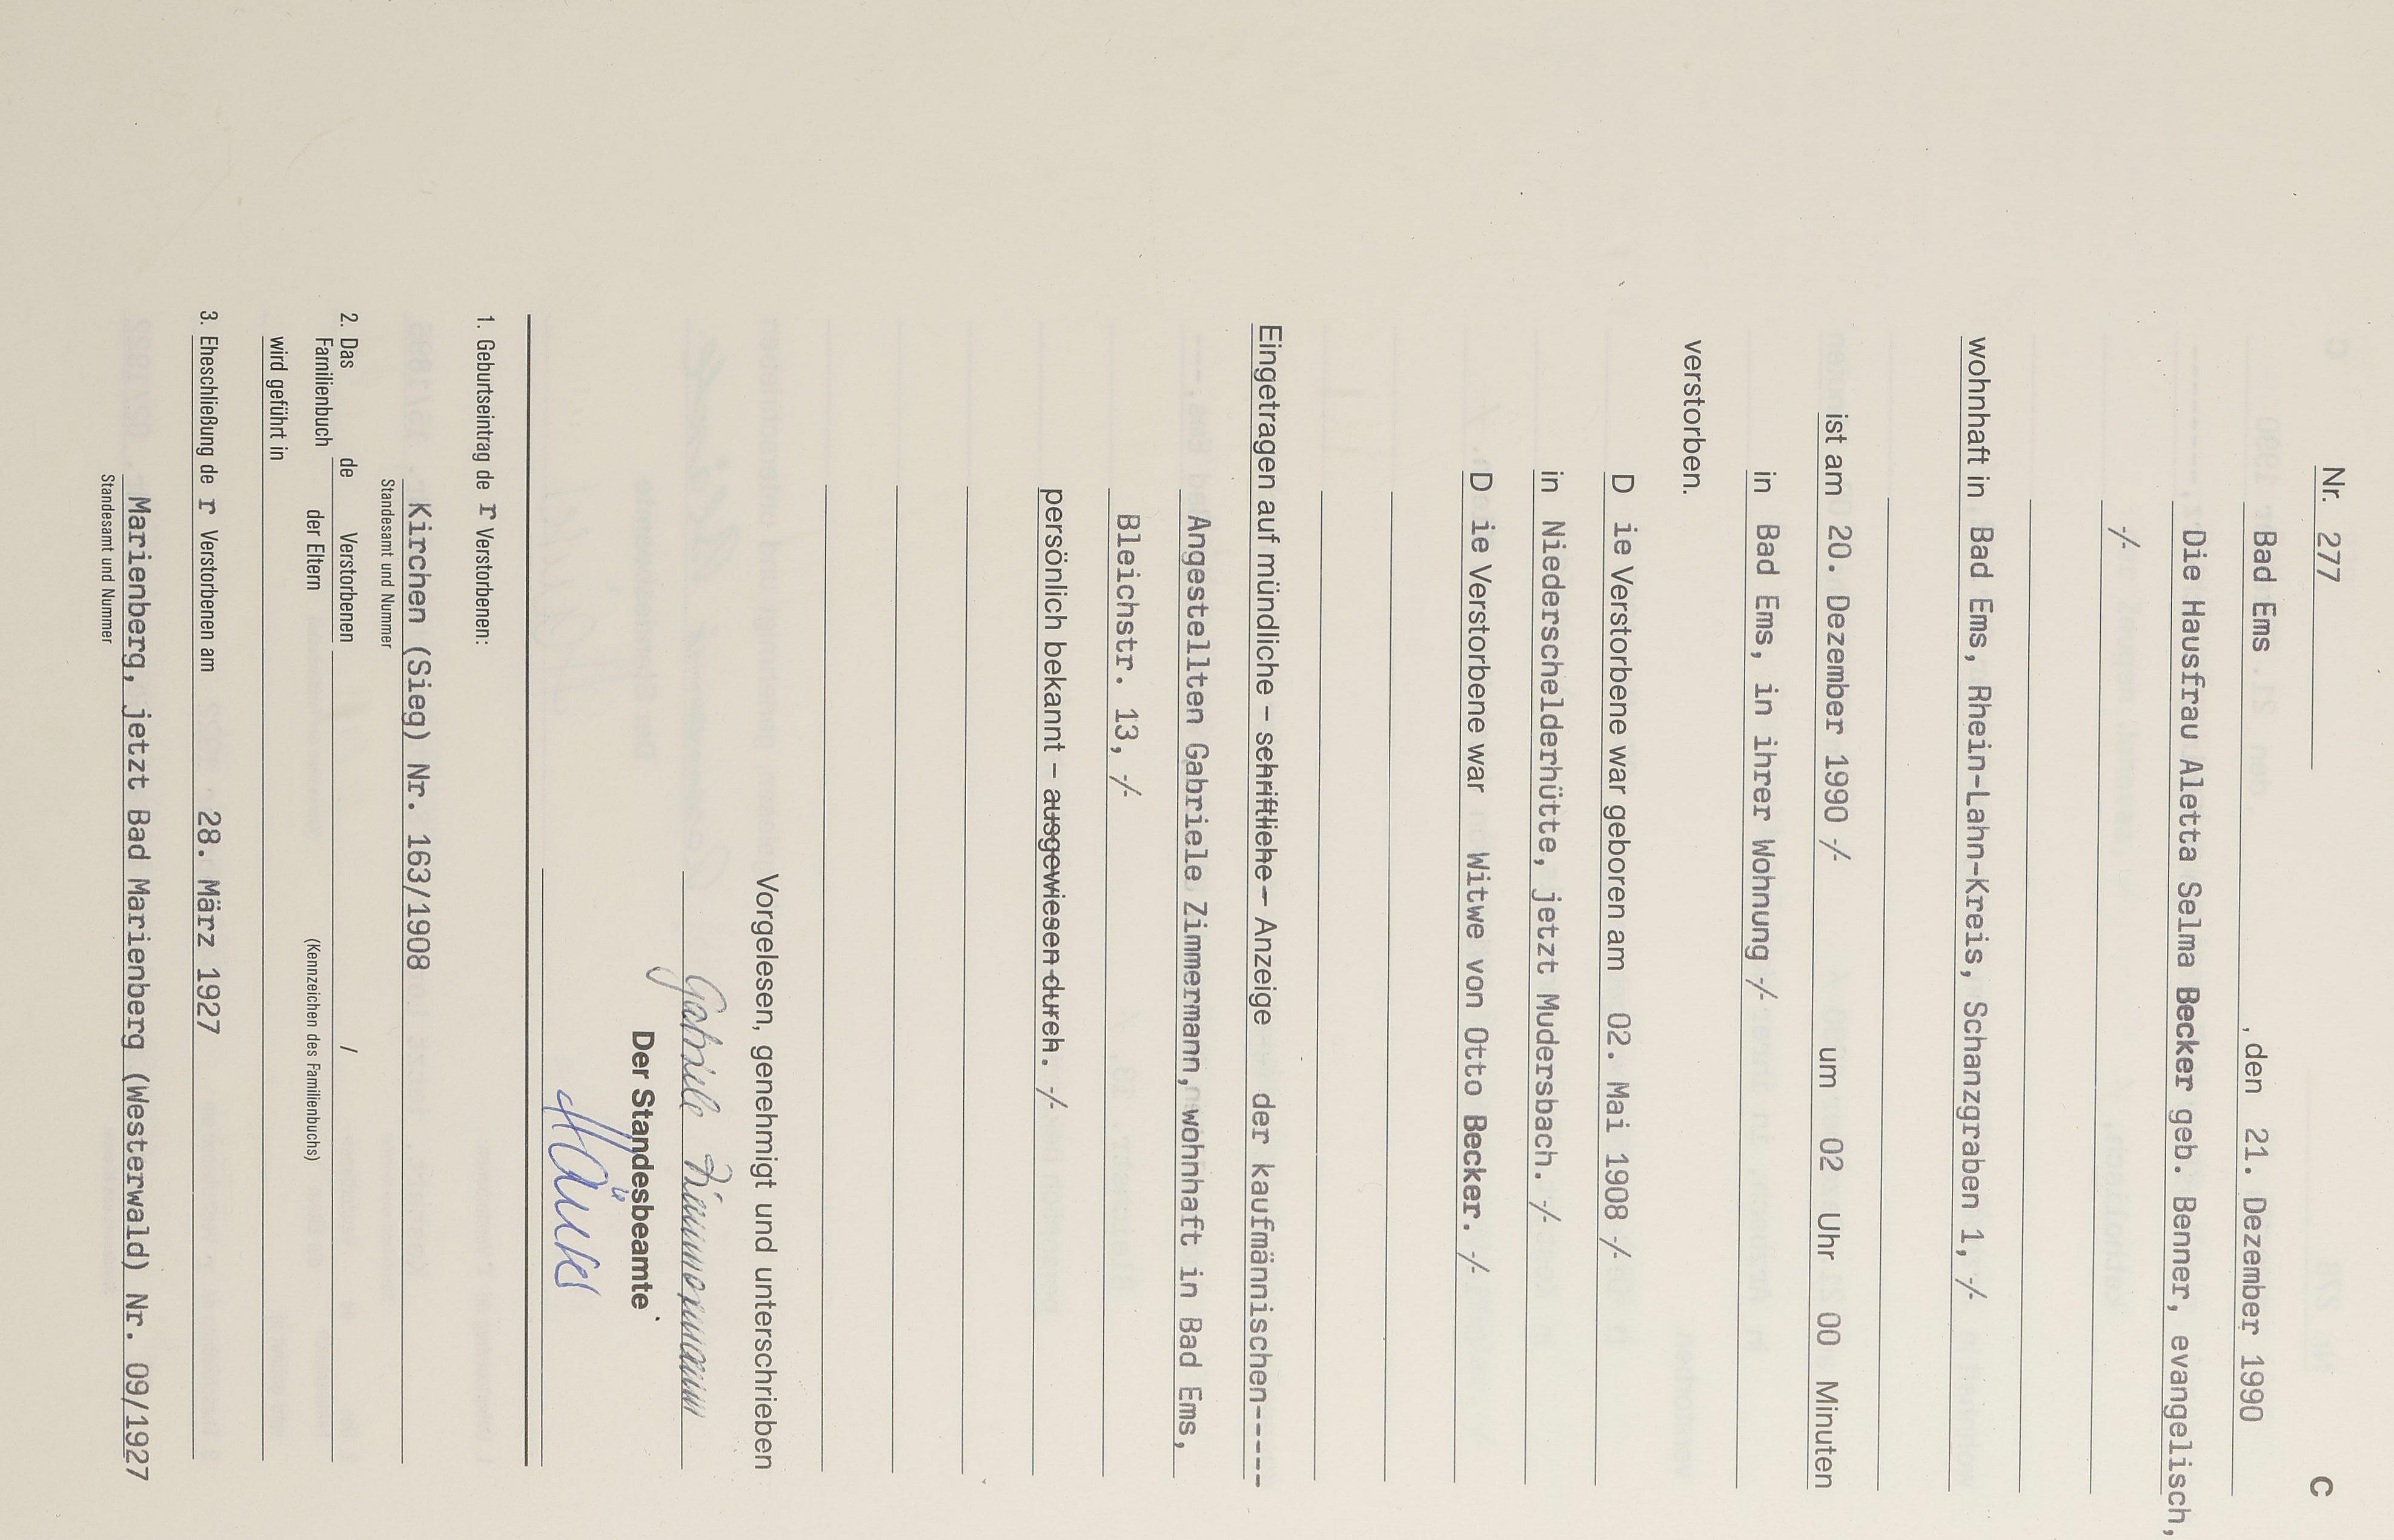 C
Nr. 277
Bad Ems, den 21. Dezember 1990
Die Hausfrau Aletta Selma Becker geb. Benner, evangelisch,
-/-
wohnhaft in Bad Ems, Rhein-Lahn-Kreis, Schanzgraben 1, -/-
ist am 20. Dezember 1990 -/- um 02 Uhr 00 Minuten
in Bad Ems, in ihrer Wohnung -/-
verstorben.
D ie Verstorbene war geboren am 02. Mai 1908 -/-
in Niederschelderhütte, jetzt Mudersbach. -/-
D ie Verstorbene war Witwe von Otto Becker. -/-
Eingetragen auf mündliche – schriftliche – Anzeige der kaufmännischen-----
Angestellten Gabriele Zimmermann, wohnhaft in Bad Ems,
Bleichstr. 13, -/-
persönlich bekannt – ausgewiesen durch. -/-
Vorgelesen, genehmigt und unterschrieben
Gabriele Zimmermann
Der Standesbeamte
1. Geburtseintrag de r Verstorbenen:
Kirchen (Sieg) Nr. 163/1908
Standesamt und Nummer
2. Das Familienbuch de Verstorbenen /
der Eltern (Kennzeichen des Familienbuchs)
wird geführt in
3. Eheschließung de r Verstorbenen am 28. März 1927
Marienberg, jetzt Bad Marienberg (Westerwald) Nr. 09/1927
Standesamt und Nummer